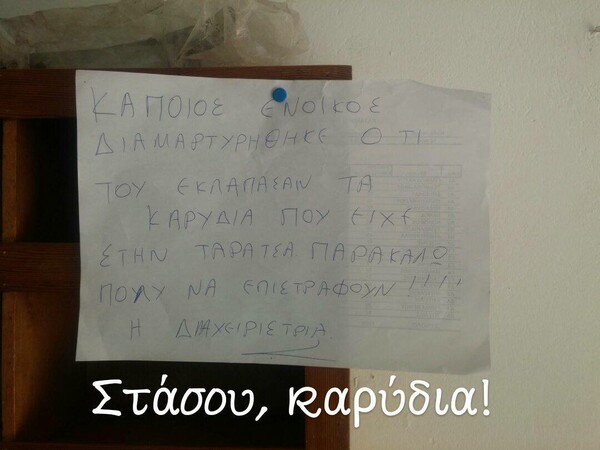 ΚΑΠΟΙΟΣ ΕΝΟΙΚΟΣ
ΔΙΑΜΑΡΤΥΡΗΘΗΚΕ Ο ΤΙ
ΤΟΥ ΕΚΛΑΠΑΣΑΝ ΤΑ
ΚΑΡΥΔΙΑ ΠΟΥ ΕΙΧΕ
ΣΤΗΝ ΤΑΡΑΤΣΑ ΠΑΡΑΚΑΛΩ
ΠΟΛΥ ΝΑ ΕΠΙΣΤΡΑΦΟΥΝ!!!!
Η ΔΙΑΧΕΙΡΙΣΤΡΙΑ
Στάσου, καρύδια!